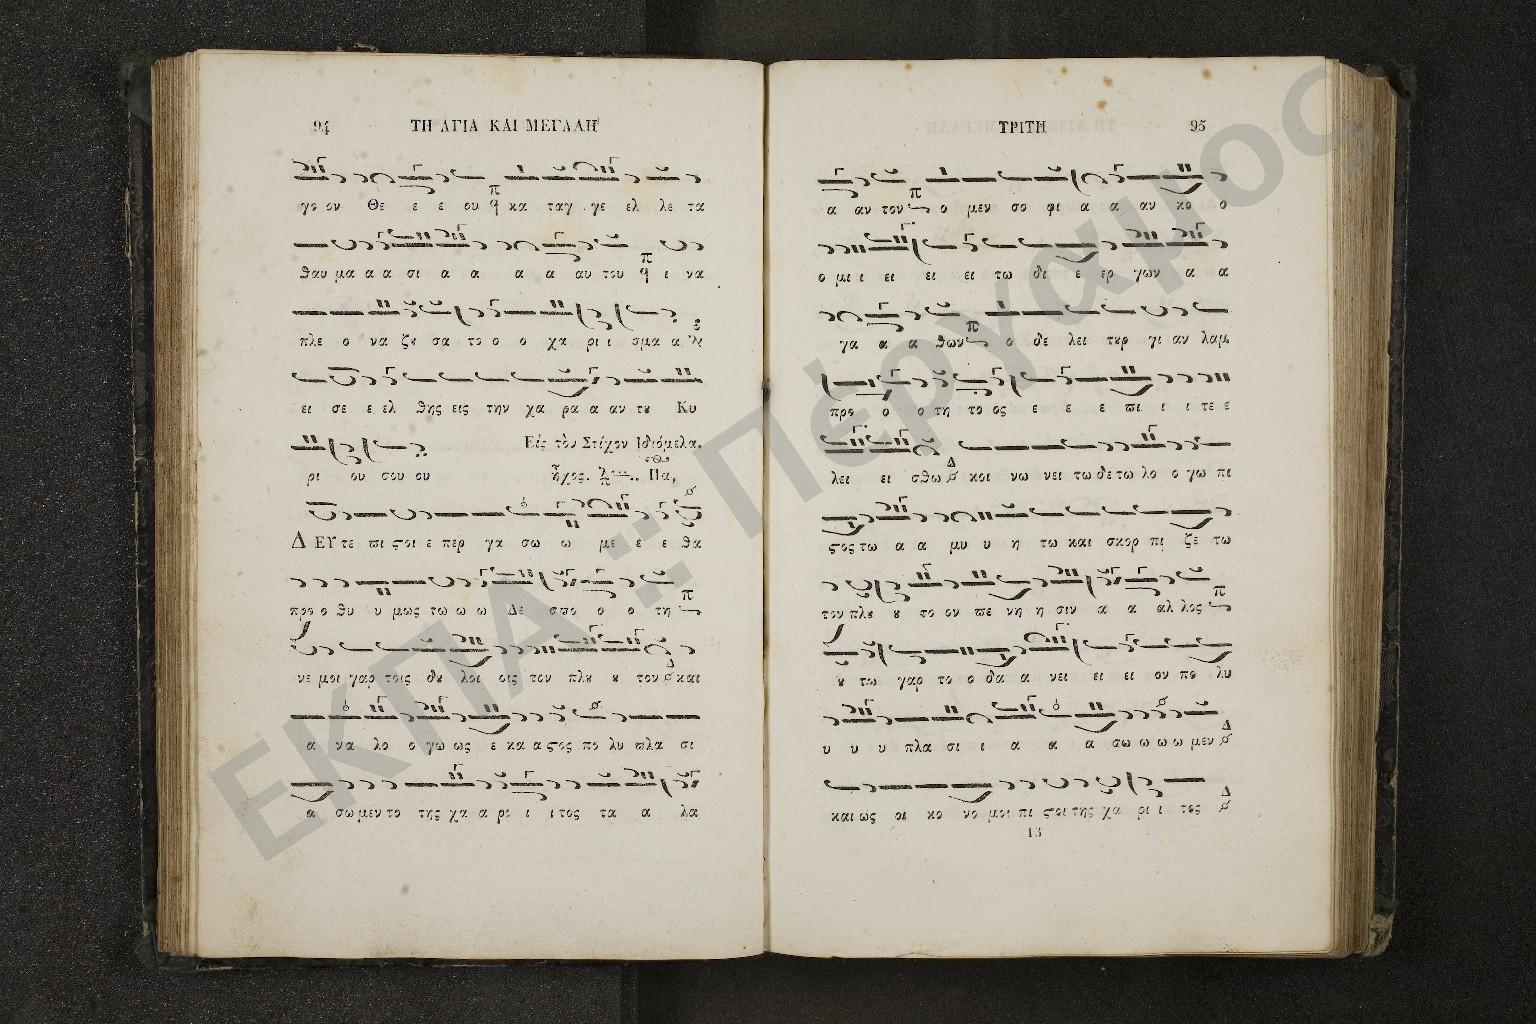 94 ΤΗ ΑΓΙΑ ΚΑΙ ΜΕΓΑΛΗ
γο ον Θε ε ε ου κα ταγ γε ελ λε τα
θαυ μα α α σι α α α α αυ του ι να
πλε ο να ζυ σα το ο ο χα ρι ι σμα α
ει σε ε ελ θης εις την χα ρα α αν τυ Κυ
ρι ου σου ου Εἰς τὸν Στίχον Ἰδιόμελα.
ἦχος. Πα,
Δ ΕΥ τε πι ςοι ε περ γα σω ω με ε ε θα
προ ο θυ υ μως τω ω ω Δε σπο ο ο τη
νε μοι γαρ τοις δυ λοι οις τον πλυ υ τον και
α να λο ο γω ως ε κα α ςος πο λυ πλα σι
α σω μεν το της χα α ρι ι ι τος τα α λα
ΤΡΙΤΗ 95
α αν τον ο μεν σο φι α α αν κο ο
ο μι ι ει ει ει τω δι ε ερ γων α α
γα α α θων ο δε λει τυρ γι αν λαμ
προ ο ο τη το ος ε ε ε πι ι ι τε ε
λει ει σθω κοι νω νει τω δε τω λο ο γω πι
ςος τω α α μυ υ η τω και σκορ πι ζε τω
τον πλυ υ το ον πε νη η σιν α α αλ λος
υ τω γαρ το ο δα α νει ει ει ον πο λυ
υ υ υ πλα σι ι α α α σω ω ω ω μεν
και ως οι κο νο μοι πι ςοι της χα ρι ι τος
13
ΕΚΠΑ :: Πέργαμος